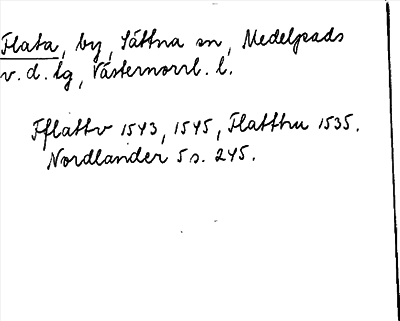 Flata, by, Sättna sn, Medelpads
v. d. tg, Västernorrl. l.
Fflattv 1543, 1545, Flatthu 1535.
Nordlander 5 s. 245.